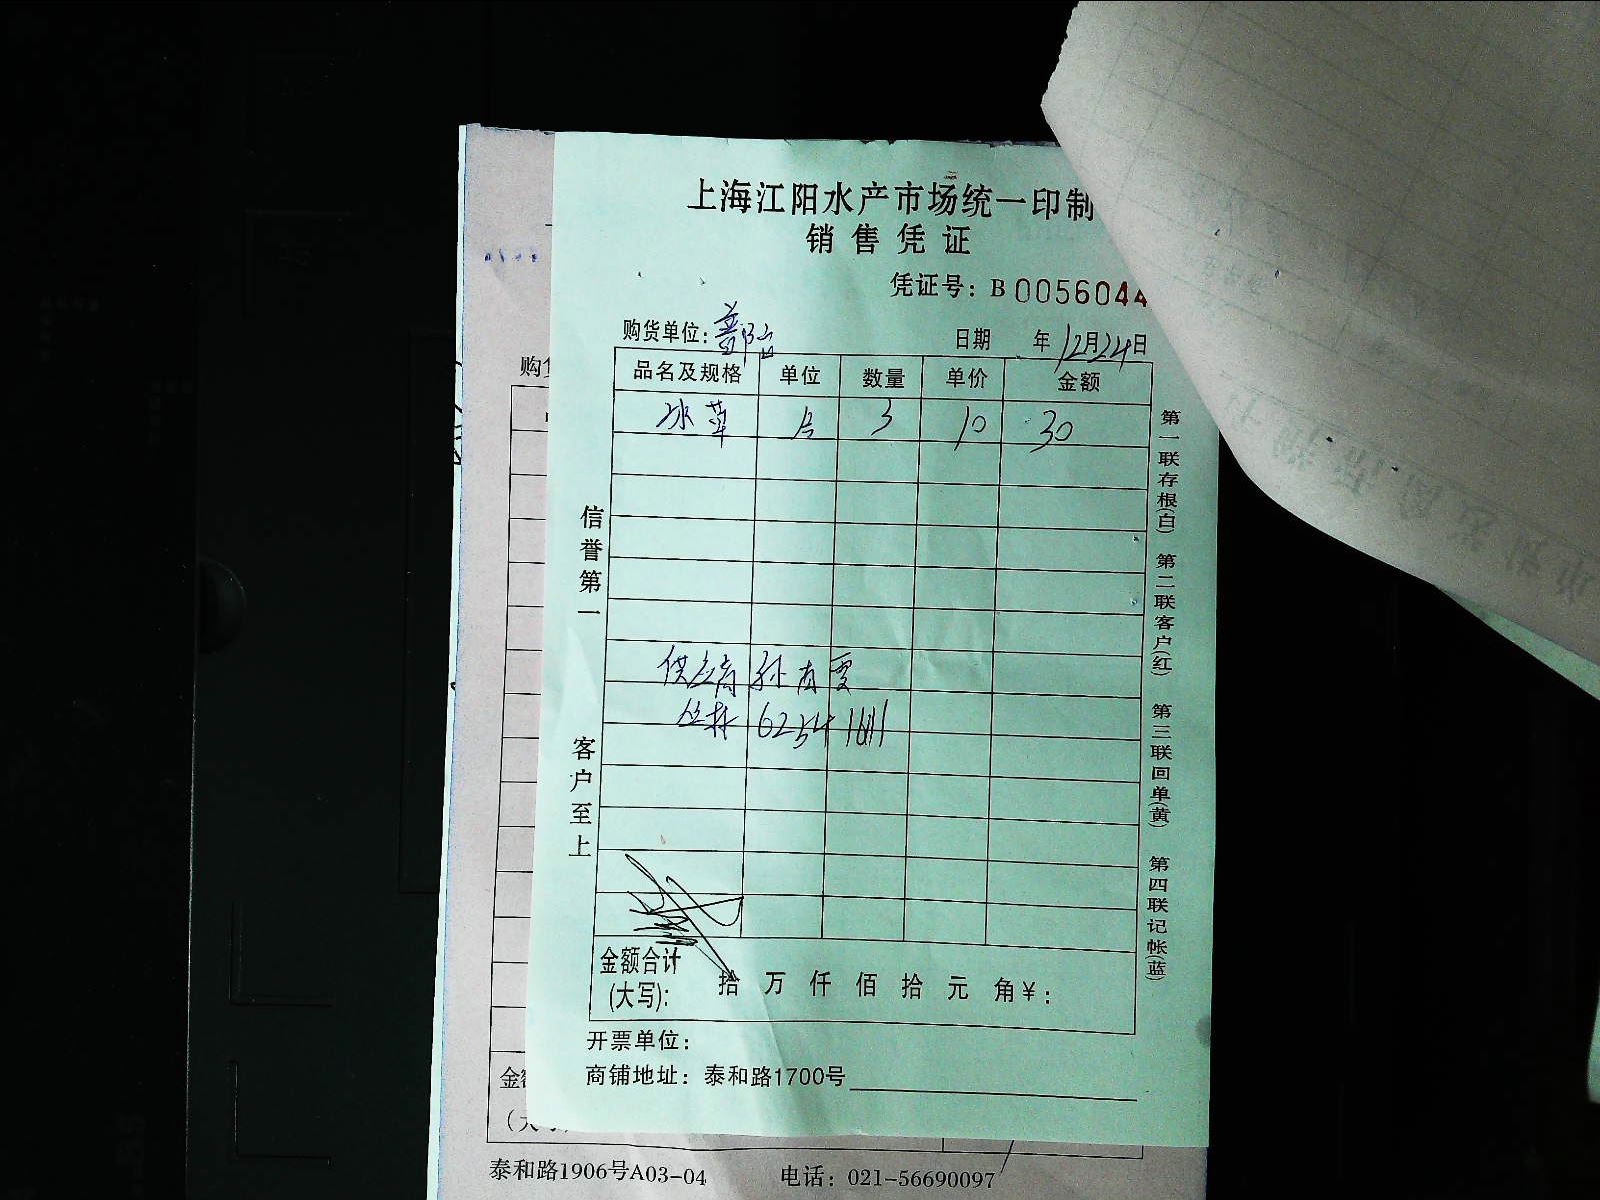 上海江阳水产市场统一印制
销售凭证
凭证号：B 0056044
购货单位：
日期 年 12月24日
品名及规格 单位 数量 单价 金额
冰草 3 10 30
供应商 孙
丛林 6254
金额合计(大写)： 拾 万 仟 佰 拾 元 角 ¥：
开票单位：
商铺地址：泰和路1700号
信誉第一
客户至上
第一联存根(白) 第二联客户(红) 第三联回单(黄) 第四联记帐(蓝)
购
金
泰和路1906号A03-04 电话：021-56690097